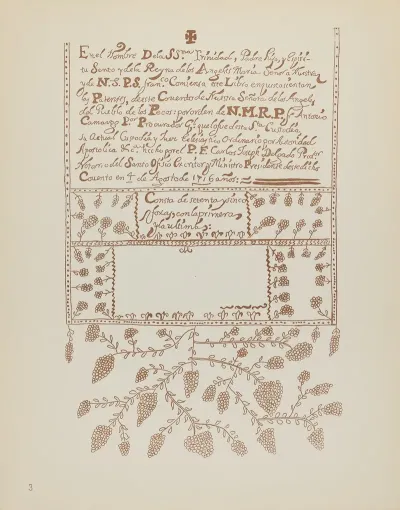 En el Nombre De la SS.ma Trinidad, Padre Hijo, y Espiri-
tu Santo y de la Reyna de los Angeles Maria Señora Nuestra
y de N.S.P.S. Fran.co Comiensa este Libro en q.
los Patentes, de este Convento de Nuestra Señora de los Angeles
del Pueblo de los Pecos: por orden de N.M.R.P. Fr. Antonio
Camargo Por Procurador G.l que fue de su S.ta Custodia,
su Actual Custodio y Juez Eclesiastico Ordinario por Autoridad
Apostolica &.a Hecho por el P. F. Carlos Joseph Delgado Pred.or
Notario del Santo Ofisio Escritor y Ministro Presidente de este dicho
Covento en 4 de Agosto de 1716 años
Consta de setenta y sinco
fojas con la primera,
y la ultima
3